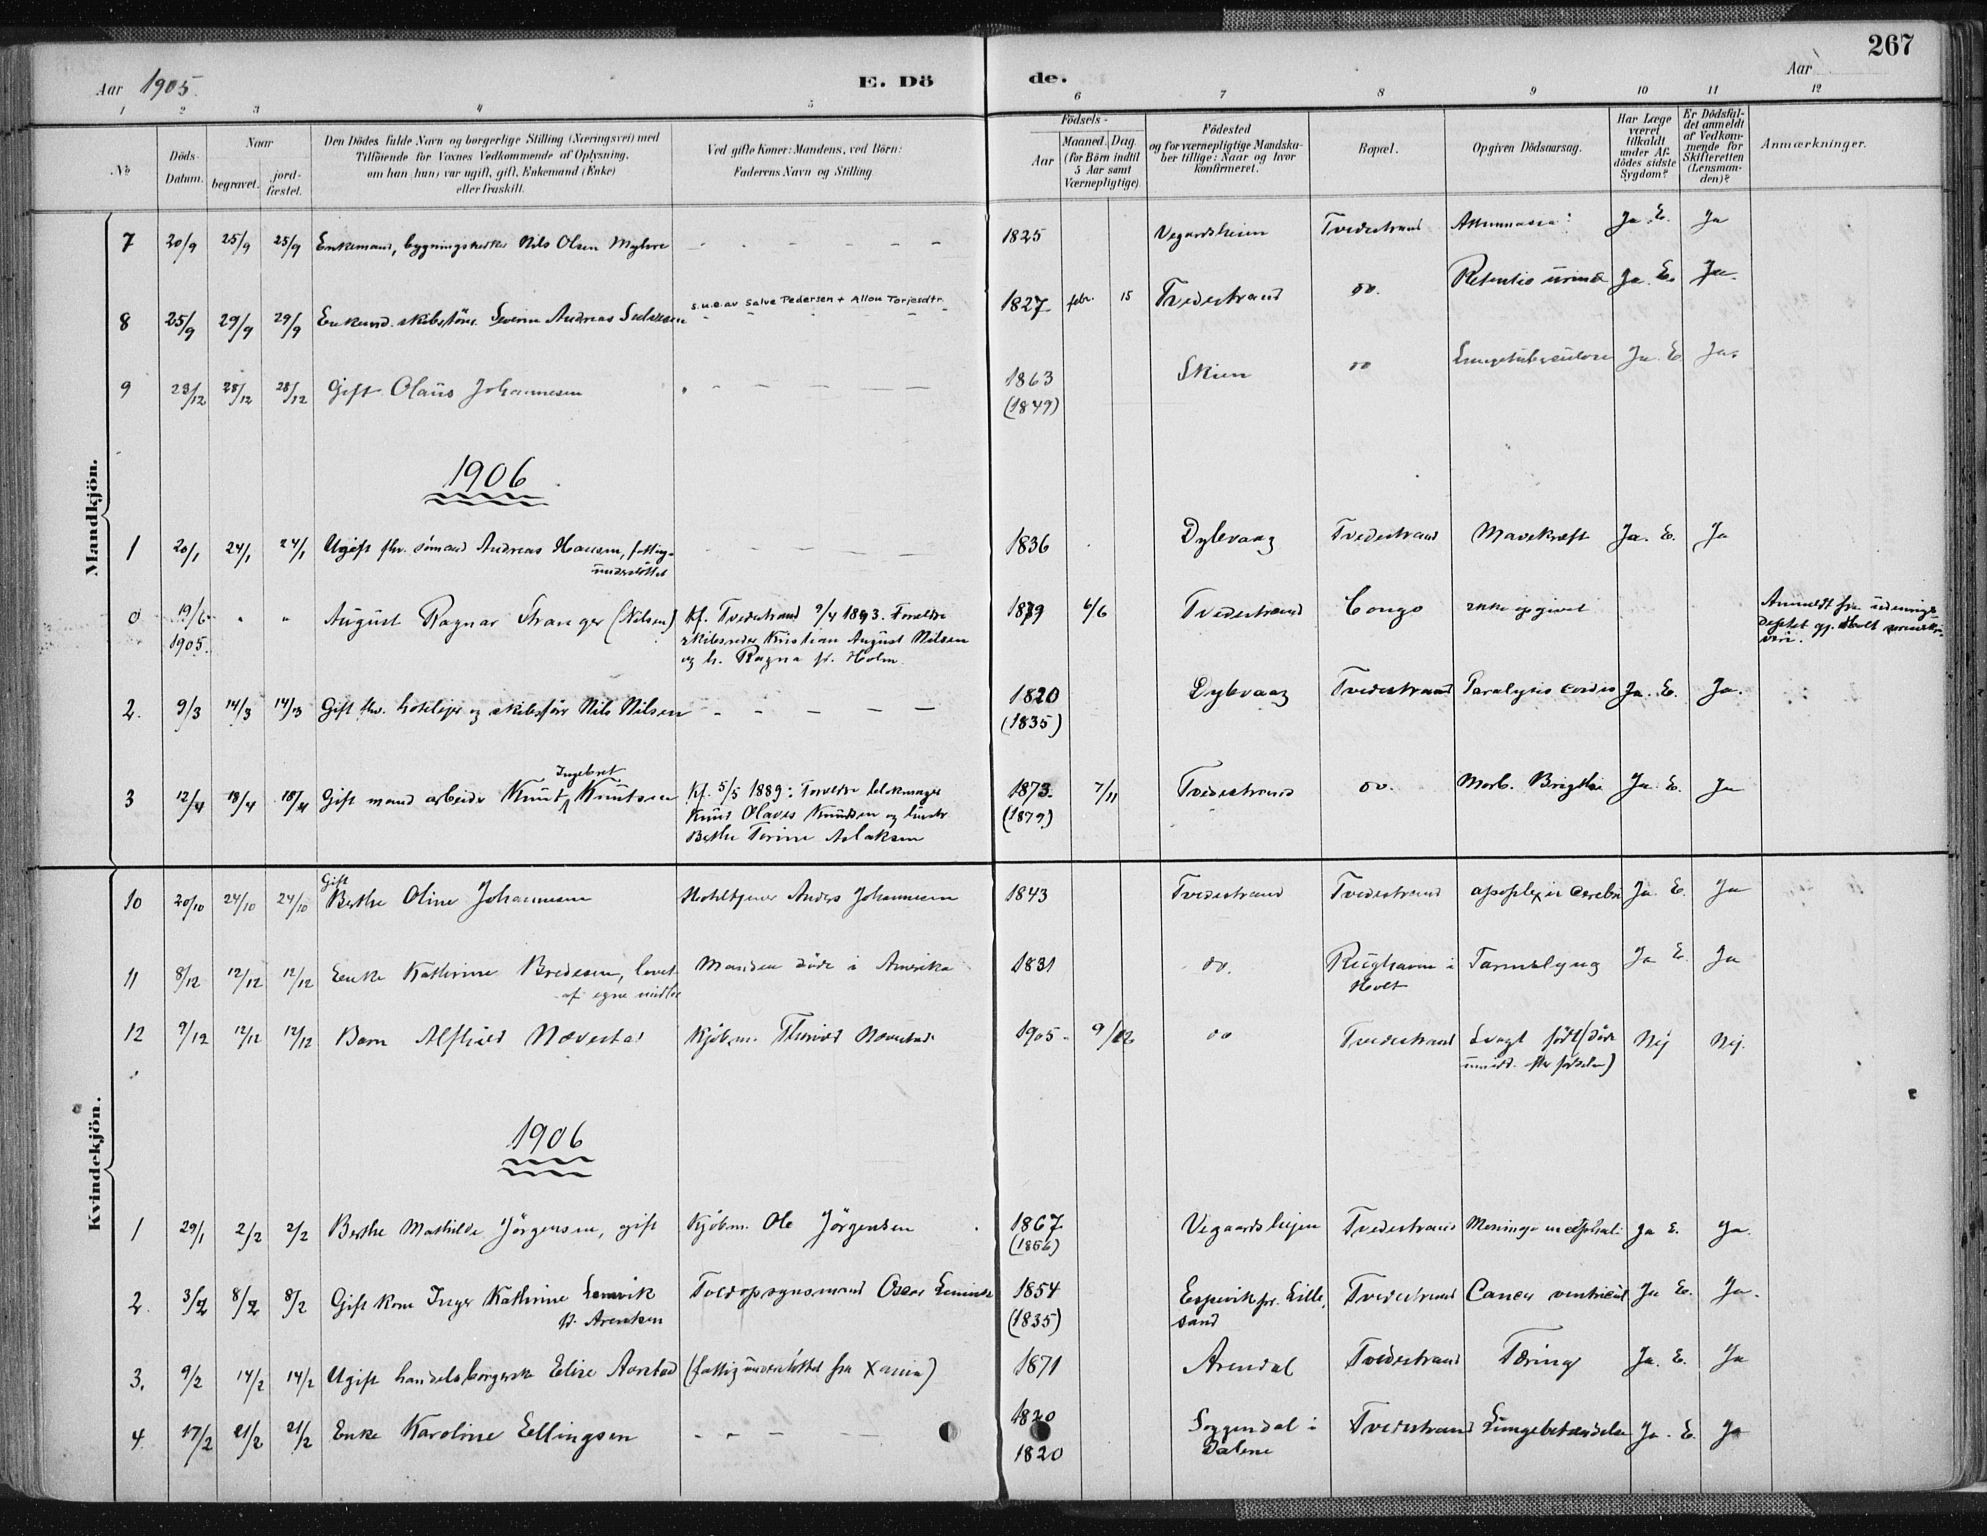 267
Aar 1905.
E. Dö
de.
Aar
1 2 3 4 5 6 7 8 9 10 11 12
No
Döds-Datum.
Naar
begravet.
jord-fæstet.
Den Dödes fulde Navn og borgerlige Stilling (Næringsvei) med
Tilföiende for Voxnes Vedkommende af Oplysning,
om han (hun) var ugift, gift, Enkemand (Enke)
eller fraskilt.
Ved gifte Koner: Mandens, ved Börn:
Faderens Navn og Stilling
Födsels-
Aar
Maaned. Dag.
(for Börn indtil
5 Aar samt
Værnepligtige)
Födested
og for værnepligtige Mandska-
ber tillige: Naar og hvor
konfirmeret.
Bopæl.
Opgiven Dödsaarsag.
Har Læge
været
tilkaldt
under Af-
dödes sidste
Sygdom?
Er Dödsfal-
det anmeldt
af Vedkom-
mende for
Skifteretten
(Lensman-
den)?
Anmærkninger.
Mandkjön.
7 20/9 25/9 25/9 Enkemand, Nils Olsen Myhre - - - - - - 1825 Vegardsheien Tvedestrand Ja. E. Ja
8 25/9 29/9 29/9 Severin Andreas s.u.e. av Salve Pedersen + Allou Torjesdtr. 1827 febr. 15 Tvedestrand do. Retentio urinæ Ja. E. Ja.
9 23/12 28/12 28/12 Gift Olaüs Johannesen - - - - - - 1863 Skien do Ja. E. Ja.
(1849)
1906
1 20/1 24/1 24/1 Ugift fhv. sömand Andreas Hansen, fattig-
understöttet - - - - - - 1836 Dybvaag Tvedestrand Mavekræft Ja. E. Ja
0 19/6 " " August Ragnar Stranger (Nilsen) Kf. Tvedestrand 9/4 1893. Forældre 1879 6/6 Tvedestrand Congo ikke opgivet Anmeldt fra
1905. Kristian August Nilsen
og h. Ragna f. Holm.
2. 9/3 14/3 14/3 Gift fhv. og skibsförer Nils Nilsen - - - - - 1820 Dybvaag Tvedestrand Paralysis cordis Ja. E. Ja.
(1835)
Ingebret
3 12/4 18/4 18/4 Gift mand arbeider Knut Knutsen Kf. 5/5 1889: Forældre 1873. 7/11 Tvedestrand do. Morb. Brightii Ja. E. Ja
Knut Olaves Knudsen og hustr (1879)
Berthe Terine Aslaksen
Kvindekjön.
Gift
10 20/10 24/10 24/10 Berthe Oline Johannesen Anders Johannesen 1843 Tvedestrand Tvedestrand apoplexia cerebri Ja. E. Ja
11 8/12 12/12 12/12 Enke Kathrine Bredesen, levet Manden döde i Amerika 1831 do. i Tarmslyng Ja E. Ja
af egne midler Holt
12 9/12 12/12 12/12 Barn Alfhild Nævestad Kjøbm. Nævestad 1905. 9/12 do Tvedestrand Svagt född (döde Nej Nej.
umidd. efter födselen)
1906
1 29/1 2/2 2/2 Berthe Mathilde Jörgensen, gift Kjøbm. Ole Jörgensen 1867 Vegaardsheien Tvedestrand Ja E. Ja.
(1856)
2. 3/2 8/2 8/2 Gift kone Inger Kathrine Lemvik Toldopsynsmand Oscar 1854 Espevik pr. Lille- Tvedestrand Cancer ventriculi Ja E. Ja.
f. Arentsen (1835) sand
3. 9/2 14/2 14/2 Ugift handelsborgerske Elise Aarstad (fattigunderstöttet fra Xania) 1871 Arendal Tvedestrand Tæring Ja. E. Ja
4. 17/2 21/2 21/2 Enke Karoline Ellingsen - - - - 1820 Soggendal i Tvedestrand Lungebetændelse Ja. E. Ja
1820 Dalene